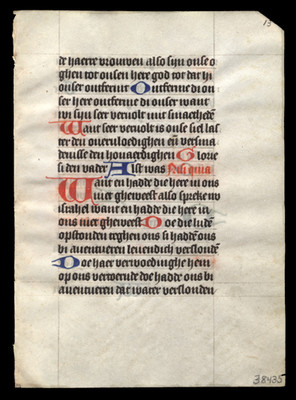 13
de haerre vrouwen also syn onse o
ghen tot onsen here god tot dat hi
onser ontfermt Ontferme di on
ser here ontferme di onser want
wi syn seer vervolt mit smaetheden
Want seer vervolt is onse siel las
ter den overvloedighen en̄ versma
denisse den hovaerdighen Glorie
si den vader Alst was Nisi quia
Want en hadde die here in ons
niet gheweest also spreke nv
israhel want en hadde die here in
ons niet gheweest Doe die ludē
opstonden teghen ons si haddē ons
bi aventueren levendich verslondē
Doe haer verwoedinghe hem
op ons verwerde doe hadde ons bi
aventueren dat water verslonden
38435